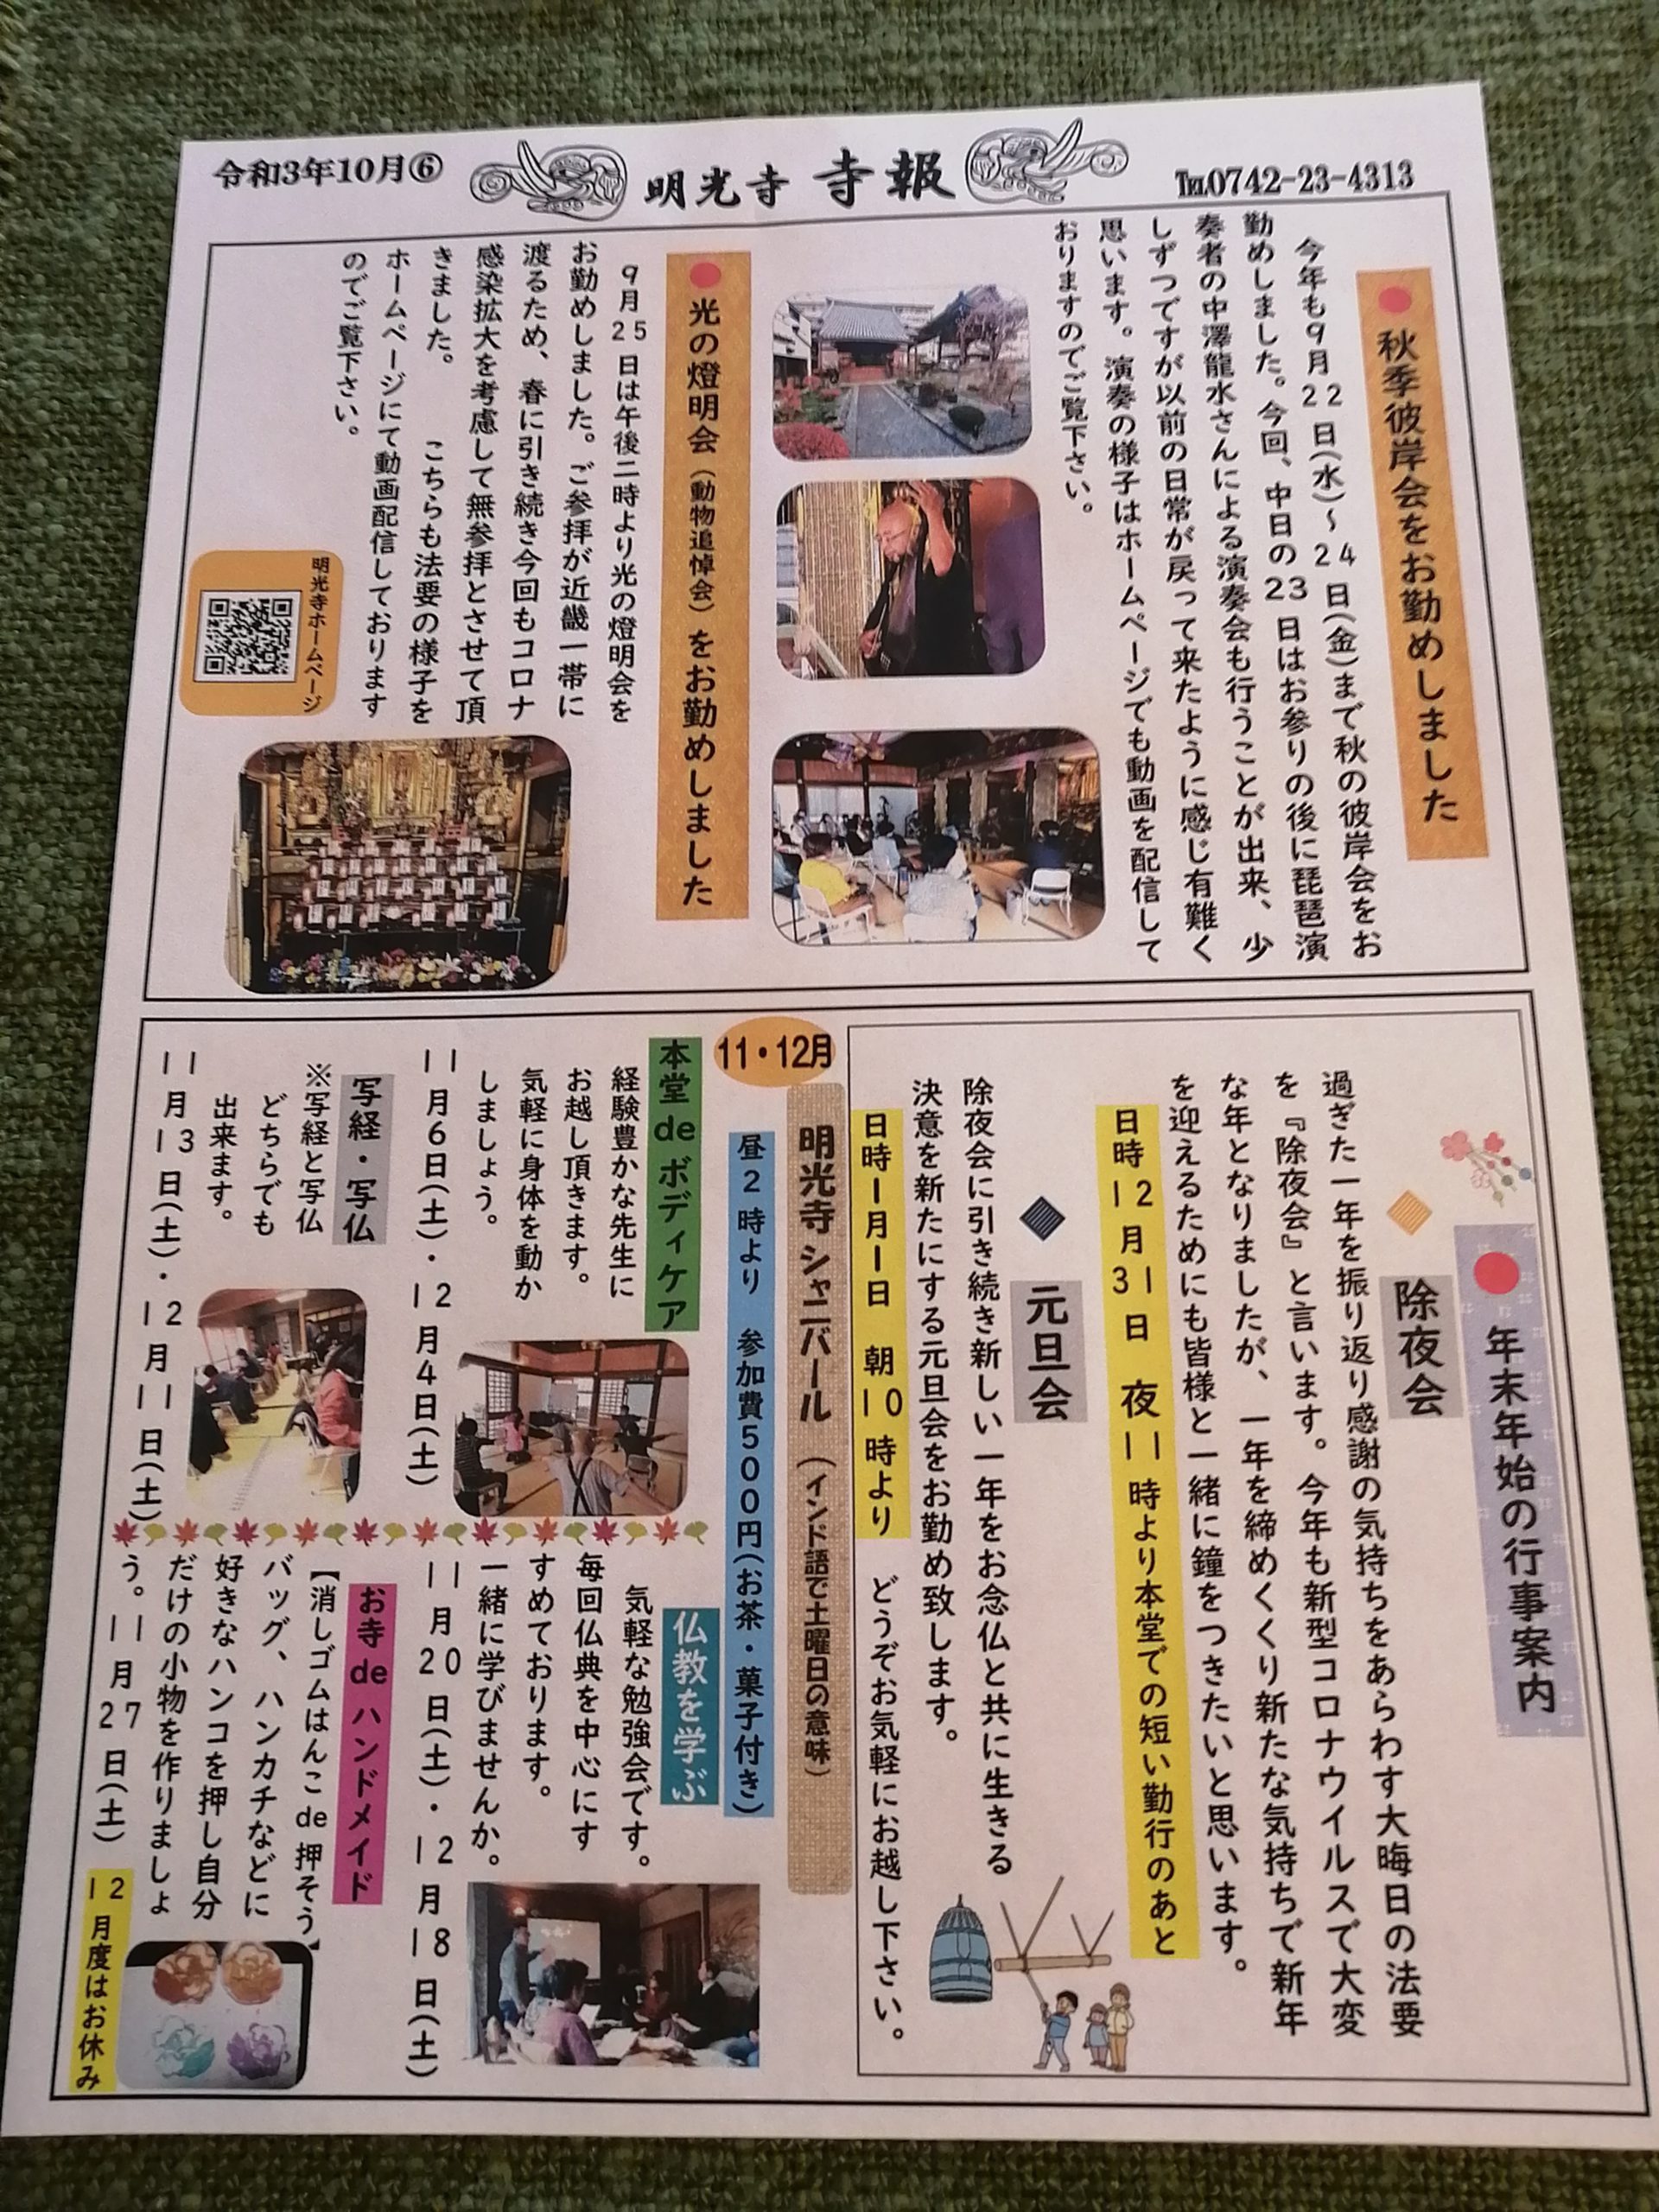 令和3年10月⑥
明光寺 寺報
℡0742-23-4313
●秋季彼岸会をお勤めしました
今年も9月22日(水)~24日(金)まで秋の彼岸会をお
勤めしました。今回、中日の23日はお参りの後に琵琶演
奏者の中澤龍水さんによる演奏会も行うことが出来、少
しずつですが以前の日常が戻って来たように感じ有難く
思います。演奏の様子はホームページでも動画を配信して
おりますのでご覧下さい。
●光の燈明会(動物追悼会)をお勤めしました
9月25日は午後二時より光の燈明会を
お勤めしました。ご参拝が近畿一帯に
渡るため、春に引き続き今回もコロナ
感染拡大を考慮して無参拝とさせて頂
きました。 こちらも法要の様子を
ホームページにて動画配信しております
のでご覧下さい。
明光寺ホームページ
●年末年始の行事案内
除夜会
過ぎた一年を振り返り感謝の気持ちをあらわす大晦日の法要
を『除夜会』と言います。今年も新型コロナウイルスで大変
な年となりましたが、一年を締めくくり新たな気持ちで新年
を迎えるためにも皆様と一緒に鐘をつきたいと思います。
日時12月31日 夜11時より本堂での短い勤行のあと
元旦会
除夜会に引き続き新しい一年をお念仏と共に生きる
決意を新たにする元旦会をお勤め致します。
日時1月1日 朝10時より どうぞお気軽にお越し下さい。
11・12月
明光寺 シャニバール (インド語で土曜日の意味)
昼2時より 参加費500円(お茶・菓子付き)
本堂 de ボディケア
経験豊かな先生に
お越し頂きます。
気軽に身体を動か
しましょう。
11月6日(土)・12月4日(土)
写経・写仏
※写経と写仏
どちらでも
出来ます。
11月13日(土)・12月11日(土)
仏教を学ぶ
気軽な勉強会です。
毎回仏典を中心にす
すめております。
一緒に学びませんか。
11月20日(土)・12月18日(土)
お寺 de ハンドメイド
【消しゴムはんこ de 押そう】
バッグ、ハンカチなどに
好きなハンコを押し自分
だけの小物を作りましょ
う。11月27日(土)
12月度はお休み